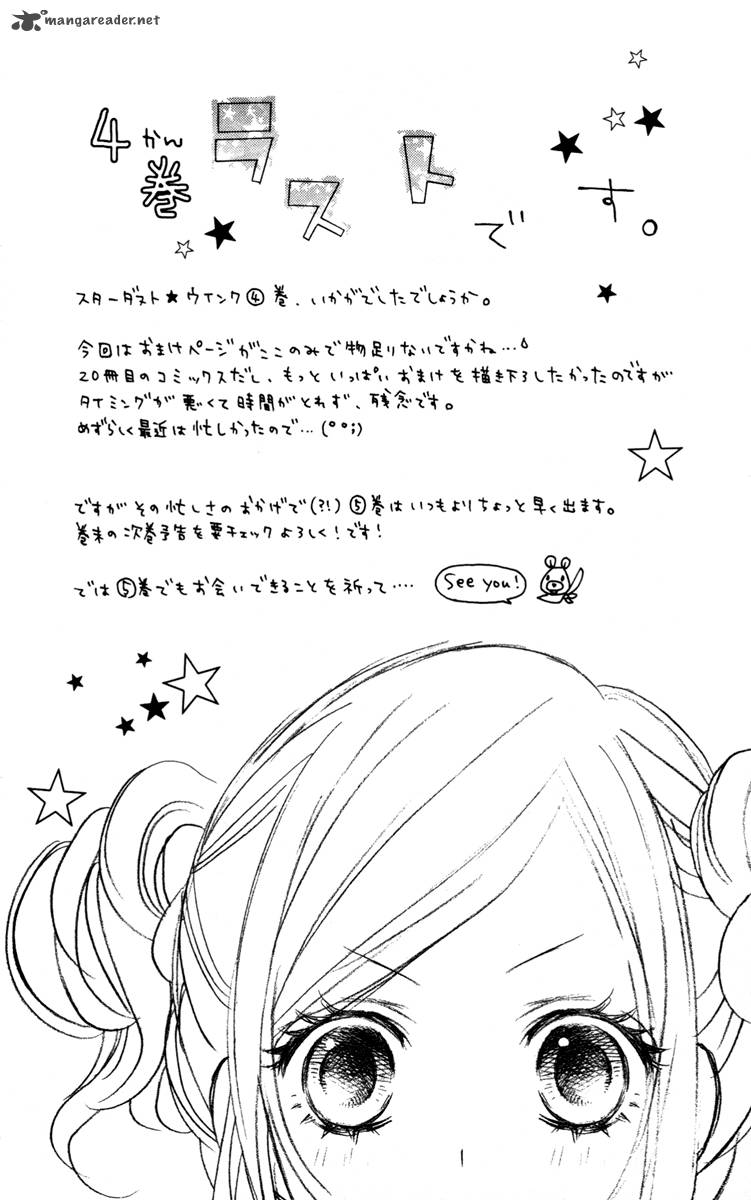 mangareader.net
4巻かん ラストです。
スターダスト★ウインク④巻、いかがでしたでしょうか。
今回はおまけページがここのみで物足りないですかね…
20冊目のコミックスだし、もっといっぱいおまけを描き下ろしたかったのですが
タイミングが悪くて時間がとれず、残念です。
めずらしく最近は忙しかったので…(°°;)
ですがその忙しさのおかげで(?!)⑤巻はいつもよりちょっと早く出ます。
巻末の次巻予告を要チェックよろしく!です!
では⑤巻でもお会いできることを祈って‥‥
See you!